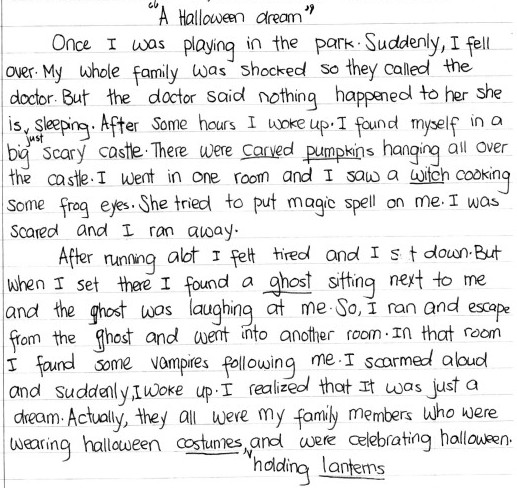 "A Halloween dream"
Once I was playing in the park. Suddenly, I fell
over. My whole family was shocked so they called the
doctor. But the doctor said nothing happened to her she
is just sleeping. After some hours I woke up. I found myself in a
big scary castle. There were carved pumpkins hanging all over
the castle. I went in one room and I saw a witch cooking
some frog eyes. She tried to put magic spell on me. I was
scared and I ran away.
After running alot I felt tired and I s t down. But
when I set there I found a ghost sitting next to me
and the ghost was laughing at me. So, I ran and escape
from the ghost and went into another room. In that room
I found some vampires following me. I scarmed aloud
and suddenly, I woke up. I realized that It was just a
dream. Actually, they all were my family members who were
wearing halloween costumes, holding lanterns and were celebrating halloween.